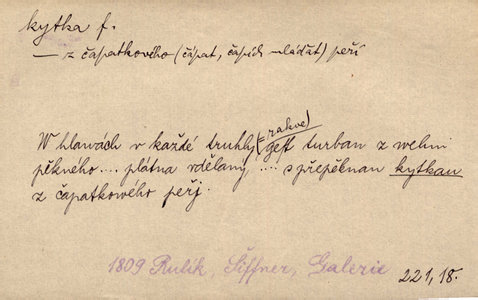 kytka f.
— z čápatkového (čápat, čápích mláďat) peří
(= rakve)
W hlawách v každé truhly gest turban z welmi
pěkného .... plátna vdělaný .... s přepěknau kytkau
z čápatkowého peřj.
1809 Rulík, Šiffner, Galerie 221, 18.